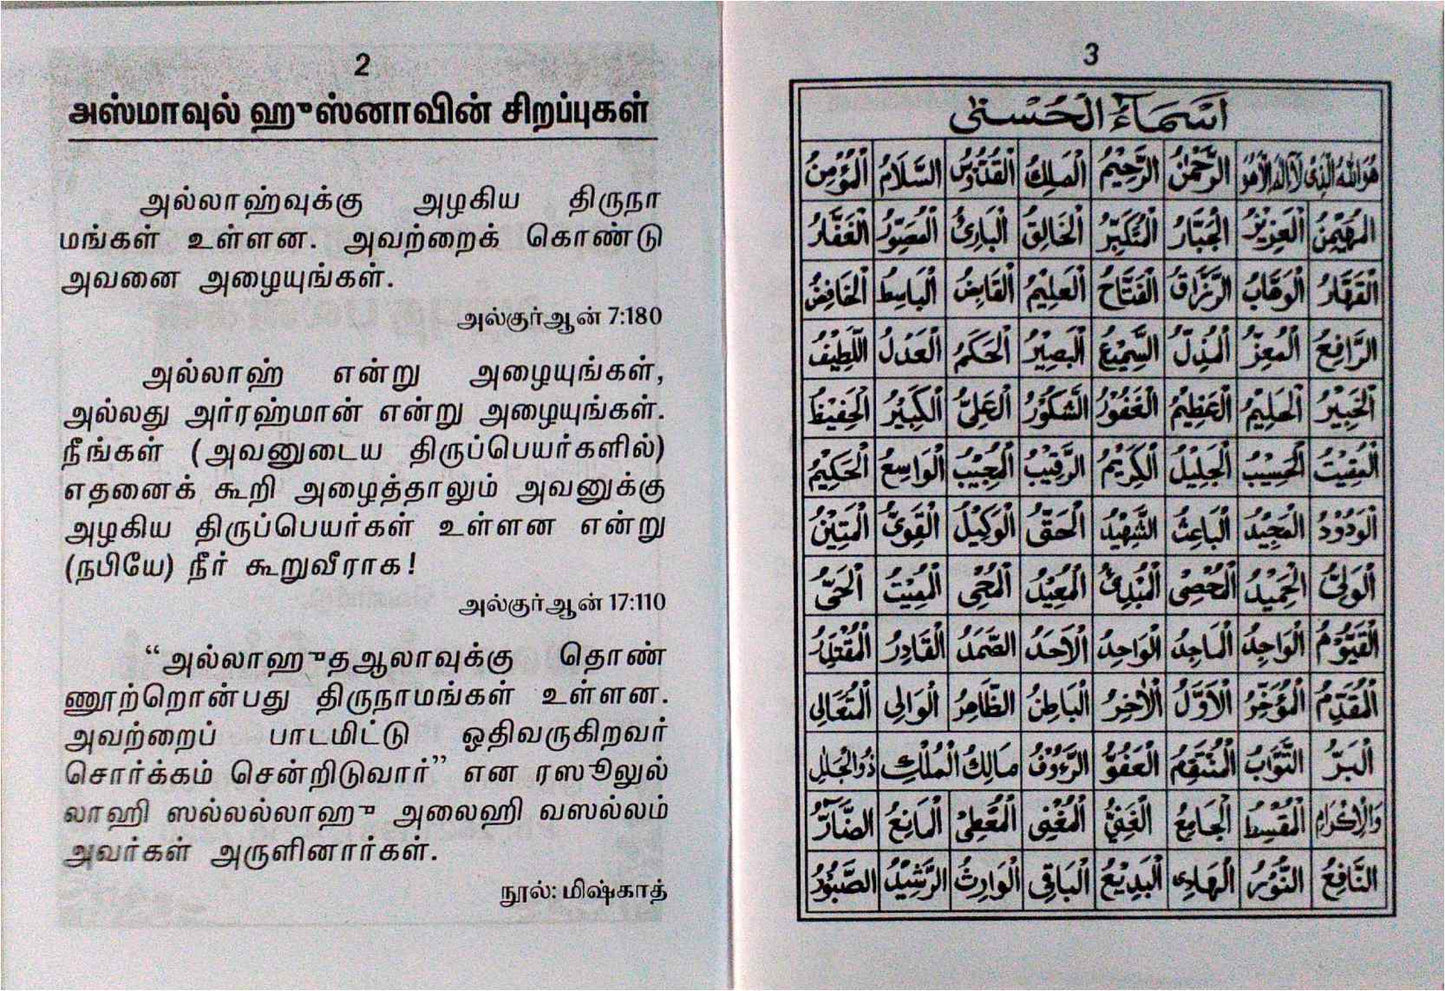 2
அஸ்மாவுல் ஹுஸ்னாவின் சிறப்புகள்
அல்லாஹ்வுக்கு அழகிய திருநா
மங்கள் உள்ளன. அவற்றைக் கொண்டு
அவனை அழையுங்கள்.
அல்குர்ஆன் 7:180
அல்லாஹ் என்று அழையுங்கள்,
அல்லது அர்ரஹ்மான் என்று அழையுங்கள்.
நீங்கள் (அவனுடைய திருப்பெயர்களில்)
எதனைக் கூறி அழைத்தாலும் அவனுக்கு
அழகிய திருப்பெயர்கள் உள்ளன என்று
(நபியே) நீர் கூறுவீராக!
அல்குர்ஆன் 17:110
“அல்லாஹுதஆலாவுக்கு தொண்
ணூற்றொன்பது திருநாமங்கள் உள்ளன.
அவற்றைப் பாடமிட்டு ஓதிவருகிறவர்
சொர்க்கம் சென்றிடுவார்” என ரஸூலுல்
லாஹி ஸல்லல்லாஹு அலைஹி வஸல்லம்
அவர்கள் அருளினார்கள்.
நூல்: மிஷ்காத்
3
اَسْمَآءُ الْحُسْنٰى
هُوَ اللّٰهُ الَّذِىْ لَآ اِلٰهَ اِلَّا هُوَ الرَّحْمٰنُ الرَّحِيْمُ الْمَلِكُ الْقُدُّوْسُ السَّلَامُ الْمُؤْمِنُ
الْمُهَيْمِنُ الْعَزِيْزُ الْجَبَّارُ الْمُتَكَبِّرُ الْخَالِقُ الْبَارِئُ الْمُصَوِّرُ الْغَفَّارُ
الْقَهَّارُ الْوَهَّابُ الرَّزَّاقُ الْفَتَّاحُ الْعَلِيْمُ الْقَابِضُ الْبَاسِطُ الْخَافِضُ
الرَّافِعُ الْمُعِزُّ الْمُذِلُّ السَّمِيْعُ الْبَصِيْرُ الْحَكَمُ الْعَدْلُ اللَّطِيْفُ
الْخَبِيْرُ الْحَلِيْمُ الْعَظِيْمُ الْغَفُوْرُ الشَّكُوْرُ الْعَلِىُّ الْكَبِيْرُ الْحَفِيْظُ
الْمُقِيْتُ الْحَسِيْبُ الْجَلِيْلُ الْكَرِيْمُ الرَّقِيْبُ الْمُجِيْبُ الْوَاسِعُ الْحَكِيْمُ
الْوَدُوْدُ الْمَجِيْدُ الْبَاعِثُ الشَّهِيْدُ الْحَقُّ الْوَكِيْلُ الْقَوِىُّ الْمَتِيْنُ
الْوَلِىُّ الْحَمِيْدُ الْمُحْصِىْ الْمُبْدِئُ الْمُعِيْدُ الْمُحْىِ الْمُمِيْتُ الْحَىُّ
الْقَيُّوْمُ الْوَاجِدُ الْمَاجِدُ الْوَاحِدُ الْاَحَدُ الصَّمَدُ الْقَادِرُ الْمُقْتَدِرُ
الْمُقَدِّمُ الْمُؤَخِّرُ الْاَوَّلُ الْاٰخِرُ الْبَاطِنُ الظَّاهِرُ الْوَالِى الْمُتَعَالِى
الْبَرُّ التَّوَّابُ الْمُنْتَقِمُ الْعَفُوُّ الرَّءُوْفُ مَالِكُ الْمُلْكِ ذُوالْجَلَالِ
وَالْاِكْرَامِ الْمُقْسِطُ الْجَامِعُ الْغَنِىُّ الْمُغْنِى الْمُعْطِى الْمَانِعُ الضَّآرُّ
النَّافِعُ النُّوْرُ الْهَادِى الْبَدِيْعُ الْبَاقِى الْوَارِثُ الرَّشِيْدُ الصَّبُوْرُ